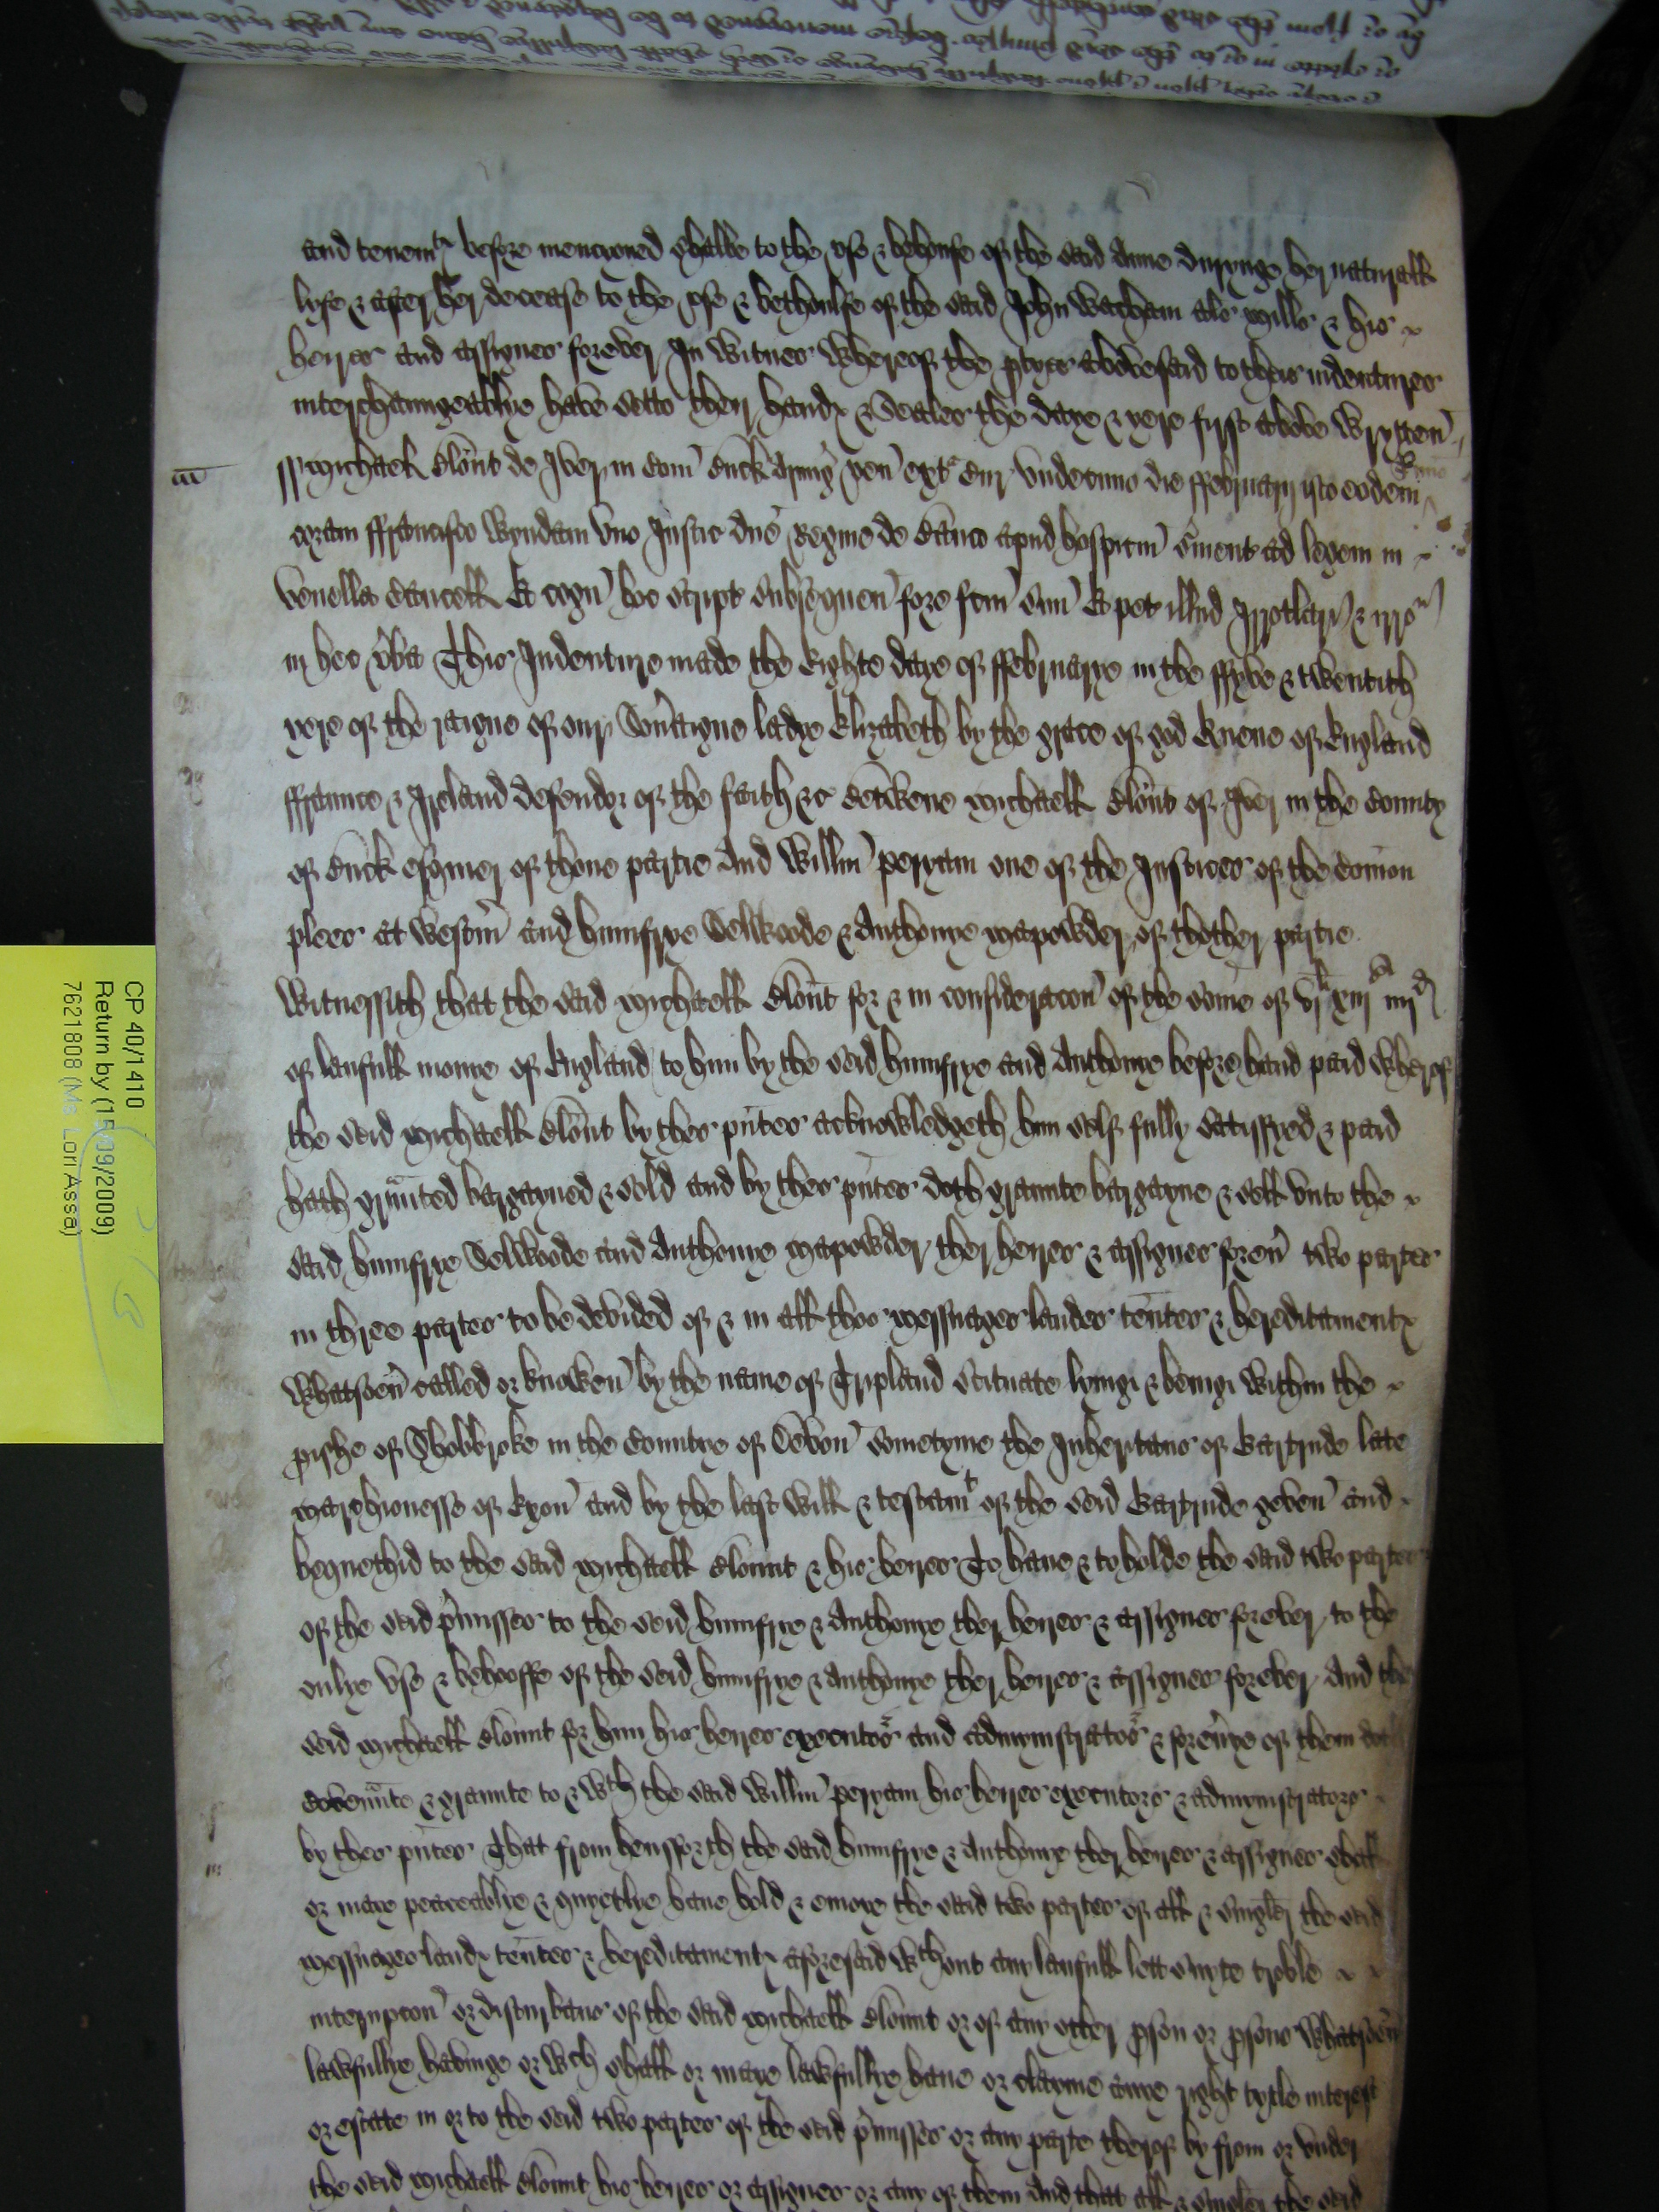 and tenemtꝭ before mencyoned shalbe to the use & behoufe of the said Anne durynge her naturall
lyfe & after her decease to the use & behoulfe of the said John Wareham als Mills & his
heyres and assignes forever In witnes whereof the ptyes abovesaid to theis indentures
interchaungeablye have setto their handꝭ & seales the daye & yere first above wrytten
Michaell Blount de Iver in Com Buck Armig ven ext Cur undecimo die ffebruarij isto eodem Tmino
coram ffrancisco Wyndam uno Justic dne Regine de Banco apud hospitiu svient ad legem in
venella Cancell Et cogn hoc script subsequen fore fcm suu Et pet illud Irrotlari & irro
in hec vba This Indenture made the Eighte daye of ffebruarye in the ffyve & twentith
yere of the raigne of our Sovaigne ladye Elizabeth by the grace of god Quene of England
ffraunce & Ireland defendor of the faith &c Betwene Michaell Blount of Iver in the County
of Buck esquier of thone partie And Willm Peryam one of the Justices of the Comon
plees at Westm and humfrye Sellwoode & Anthonye Mapowder of thother partie
Witnessith that the said Michaell Blount for & in consideracon of the some of vjli xiijs iiijd
of laufull monye of England to him by the said humfrye and Anthonye before hand paid wherof
the said Michaell Blount by thes pntes acknowledgeth him self fully satisfyed & paid
hath graunted bargayned & sold and by thes pntes doth graunte bargayne & sell unto the
said humfrye Sellwoode and Anthonye Mapowder their heyres & assignes forev two partes
in three partes to be devided of & in all thos messuages landes tentes & hereditamentꝭ
whatsoev called or knowen by the name of Tripland scituate lyinge & beinge within the
pishe of Shobbroke in the Countye of Devon sometyme the Inheritans of Gartrude late
marchionesse of Exon and by the last will & testamt of the said Gartrude geven and
bequethid to the said Michaell Blount & his heyres To have & to holde the said two partes
of the said pmisses to the said humfrye & Anthonye their heyres & assignes forever to the
onlye use & behooffe of the said humfrye & Anthonye their heyres & assignes forever And the
said Michaell Blount for him his heyres executos and admynistratos & for evye of them doth
Covenaute & graunte to & wth the said Willm Peryam his heyres executors & admynistrators
by thes pntes That from hensforth the said humfrye & Anthonye their heyres & assignes shall
or maye peaceablye & quyetlye have hold & enioye the said two partes of all & singler the said
messuages landꝭ tentes & hereditamentꝭ aforesaid wthout any laufull lett suyte troble
interrupcon or disturbans of the said Michaell Blount or of any other pson or psons whatsoev
lawfullye havinge or wch shall or maye lawfullye have or clayme anye right tytle interest
or estate in or to the said two partes of the said pmisses or any parte therof by from or under
the said Michaell Blount his heyres or assignes or any of them And that all & singler the said
CP 40/1410
Return by (15/09/2009)
7621808 (Ms Lori Assa)